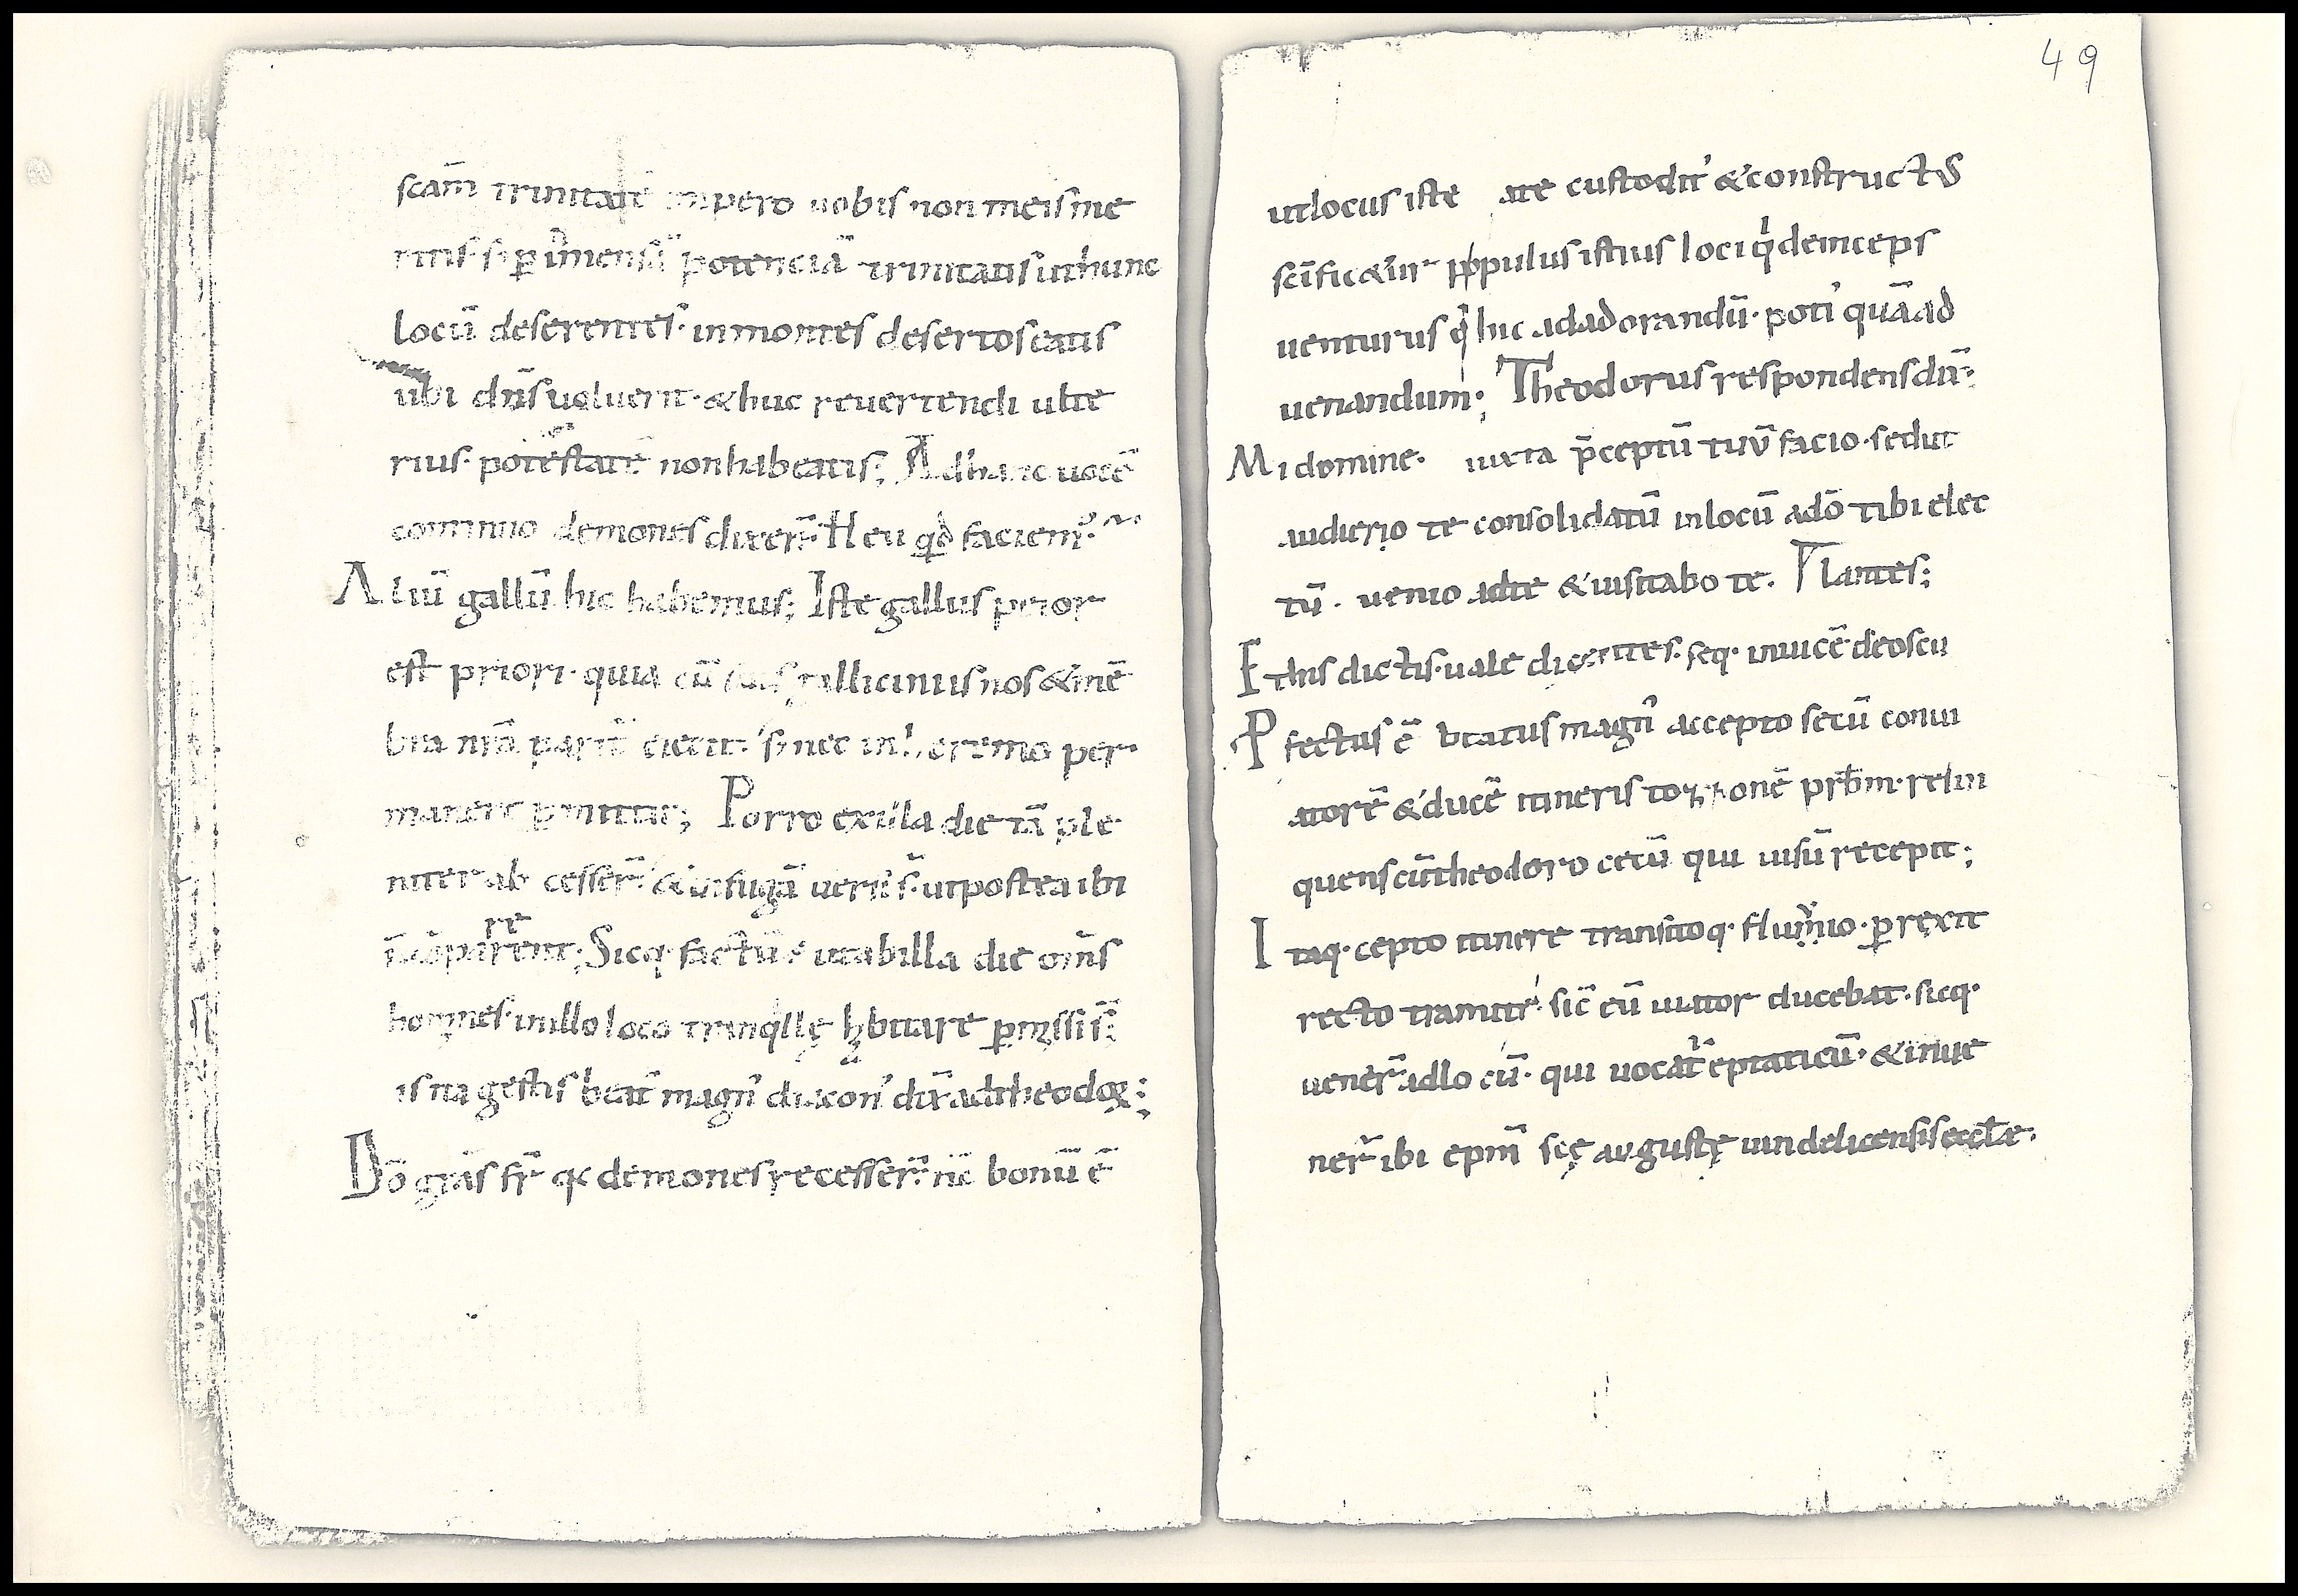 scam̄ trinitatē impero uobis non meis me
ritis· s; ꝑ īmensā potenciā trinitatis ut hunc
locū deserentes· in montes desertos eatis
ubi dn̄s uoluerit· & huc reuertendi ulte
rius· potestatē non habeatis; Ad hanc uocē
continuo demones dixer̄· Heu qd faciem᾽·
Aliū gallū hic habemus; Iste gallus peior
est priori· quia cū suis gallicinus nos & mē
bra nr̄a eicit· nec in heremo per
manere ꝑmittit; Porro ex illa die tā ple
niter ab cesser̄· & in fugā uersi s̄· ut postea ibi
re
n̄ cōparent; Sicq· factū ē ut ab illa die om̄s
homines· in illo loco tranqlle habitare ꝑmissi s̄;
is ita gestis beat᾽ magn᾽ diacon᾽ dix̄ ad theodoꝝ;
Dō grās fr̄ q demones recesser̄· nc̄ bonū ē
49
ut locus iste a te custodit᾽ & constructus
scīfic&ur· ppulus istius loci q deinceps
venturus ē huc ad adorandū· poti᾽ quā ad
uenandum; Theodorus respondens dix̄·
Mi domine· iuxta p̄ceptū tuū facio· sed ut
audiero te consolidatū in locū a dō tibi elec
tū· uenio ad te & uisitabo te· Flantes;
Et his dictis· uale dicentes· seq· inuicē deoscu
Pfectus ē beatus magn᾽ accepto secū conui
atorē & ducē itineris tozzonē prbm· relin
quens cū theodoro cecū qui uisū recepit;
Itaq· cepto itinere transitoq· fluuio· ꝑrexit
recto tramite· sic̄ eū uiator ducebat· sicq·
uener̄ ad locū· qui uocat᾽ eptaticū· & inue
ner̄ ibi epm̄ scę augustę uindelicensis ecclae·